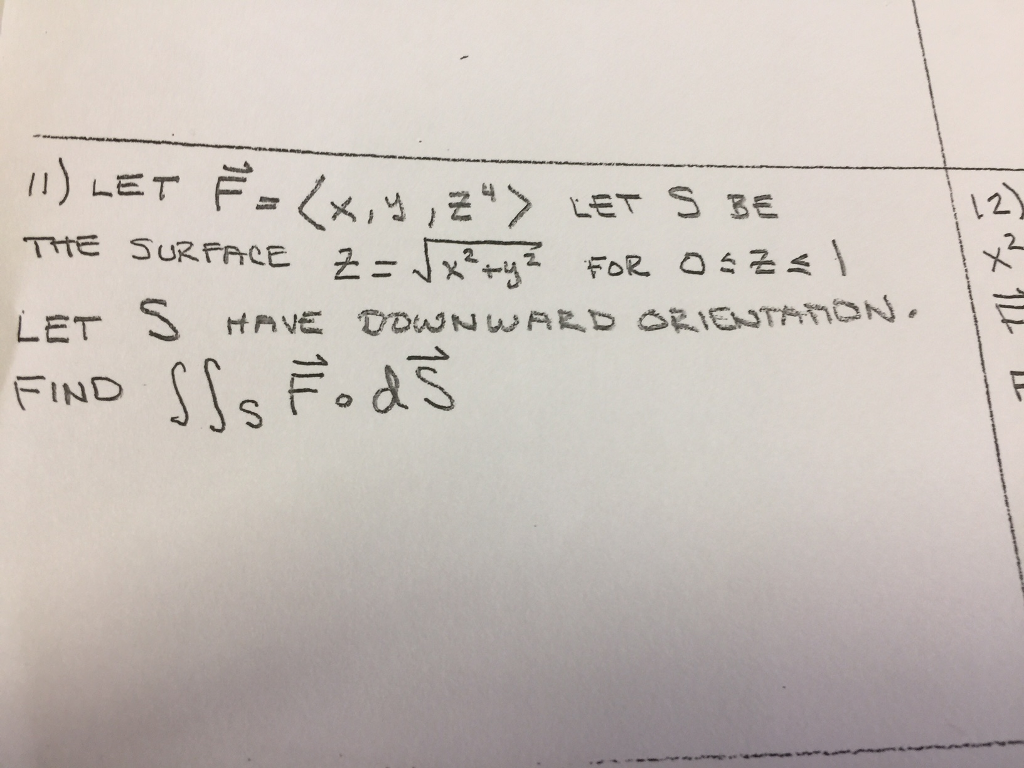 11) LET F⃗ = ⟨x, y, z⁴⟩ LET S BE
THE SURFACE z = √x²+y² FOR 0 ≤ z ≤ 1
LET S HAVE DOWNWARD ORIENTATION.
FIND ∬ₛ F⃗ ∘ dS⃗
12)
x²
F⃗
F